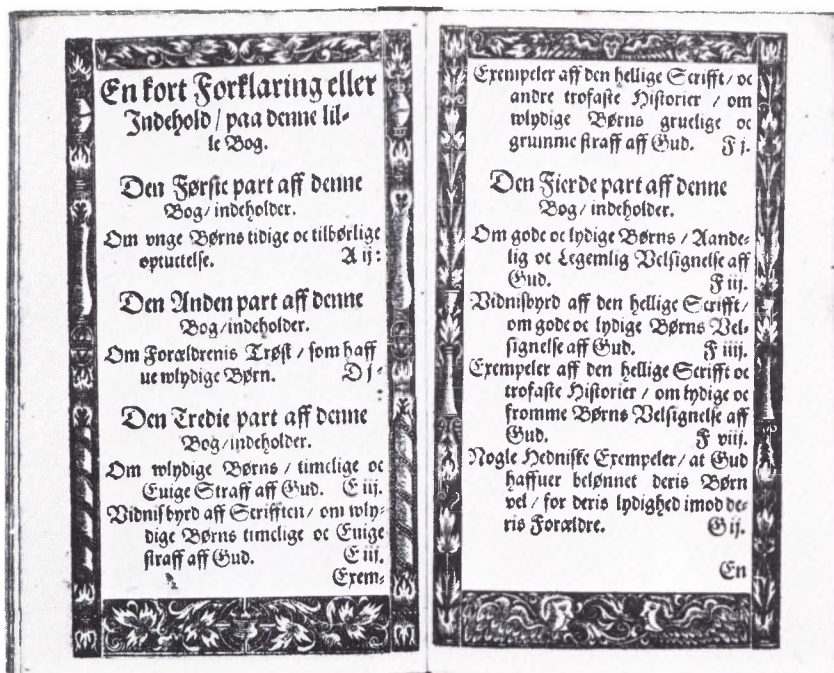 En kort Forklaring eller
Indehold / paa denne lil-
le Bog.
Den Første part aff denne
Bog / indeholder.
Om vnge Børns tidige oc tilbørlige
optuctelse. A ij:
Den Anden part aff denne
Bog / indeholder.
Om Forældrenis Trøst / som haff
ue wlydige Børn. D j-
Den Tredie part aff denne
Bog / indeholder.
Om wlydige Børns / timelige oc
Euige Straff aff Gud. E iij.
Vidnisbyrd aff Scrifften / om wly-
dige Børns timelige oc Euige
straff aff Gud. E iij.
Exem-
Exempeler aff den hellige Scrifft / oc
andre trofaste Historier / om
wlydige Børns gruelige oc
grumme straff aff Gud. F j.
Den Fierde part aff denne
Bog / indeholder.
Om gode oc lydige Børns / Aande-
lig oc Legemlig Velsignelse aff
Gud. F iij.
Vidnisbyrd aff den hellige Scrifft /
om gode oc lydige Børns Vel-
signelse aff Gud. F iiij.
Exempeler aff den hellige Scrifft oc
trofaste Historier / om lydige oc
fromme Børns Velsignelse aff
Gud. F viij.
Nogle Hedniske Exempeler / at Gud
haffuer belønnet deris Børn
vel / for deris lydighed imod de-
ris Forældre. G ij.
En